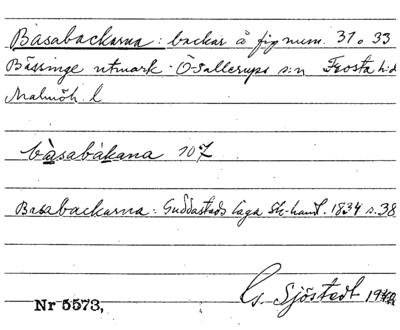 Basabackarna: backar å fig num. 31 o 33
Bässinge utmark. Ö Sallerups s:n Frosta hd
Malmöh. l
bàsabákana 107
Basabackarna: Guddastads laga sk-handl. 1834 s. 38
Nr 5573,
G. Sjöstedt